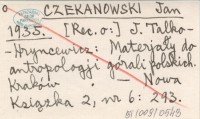 CZEKANOWSKI Jan
1935. [Rec. o:] J. Talko-
-Hryncewicz: Materjały do
antropologji górali polskich.
Kraków. — Nowa
Książka 2, nr 6: 293.